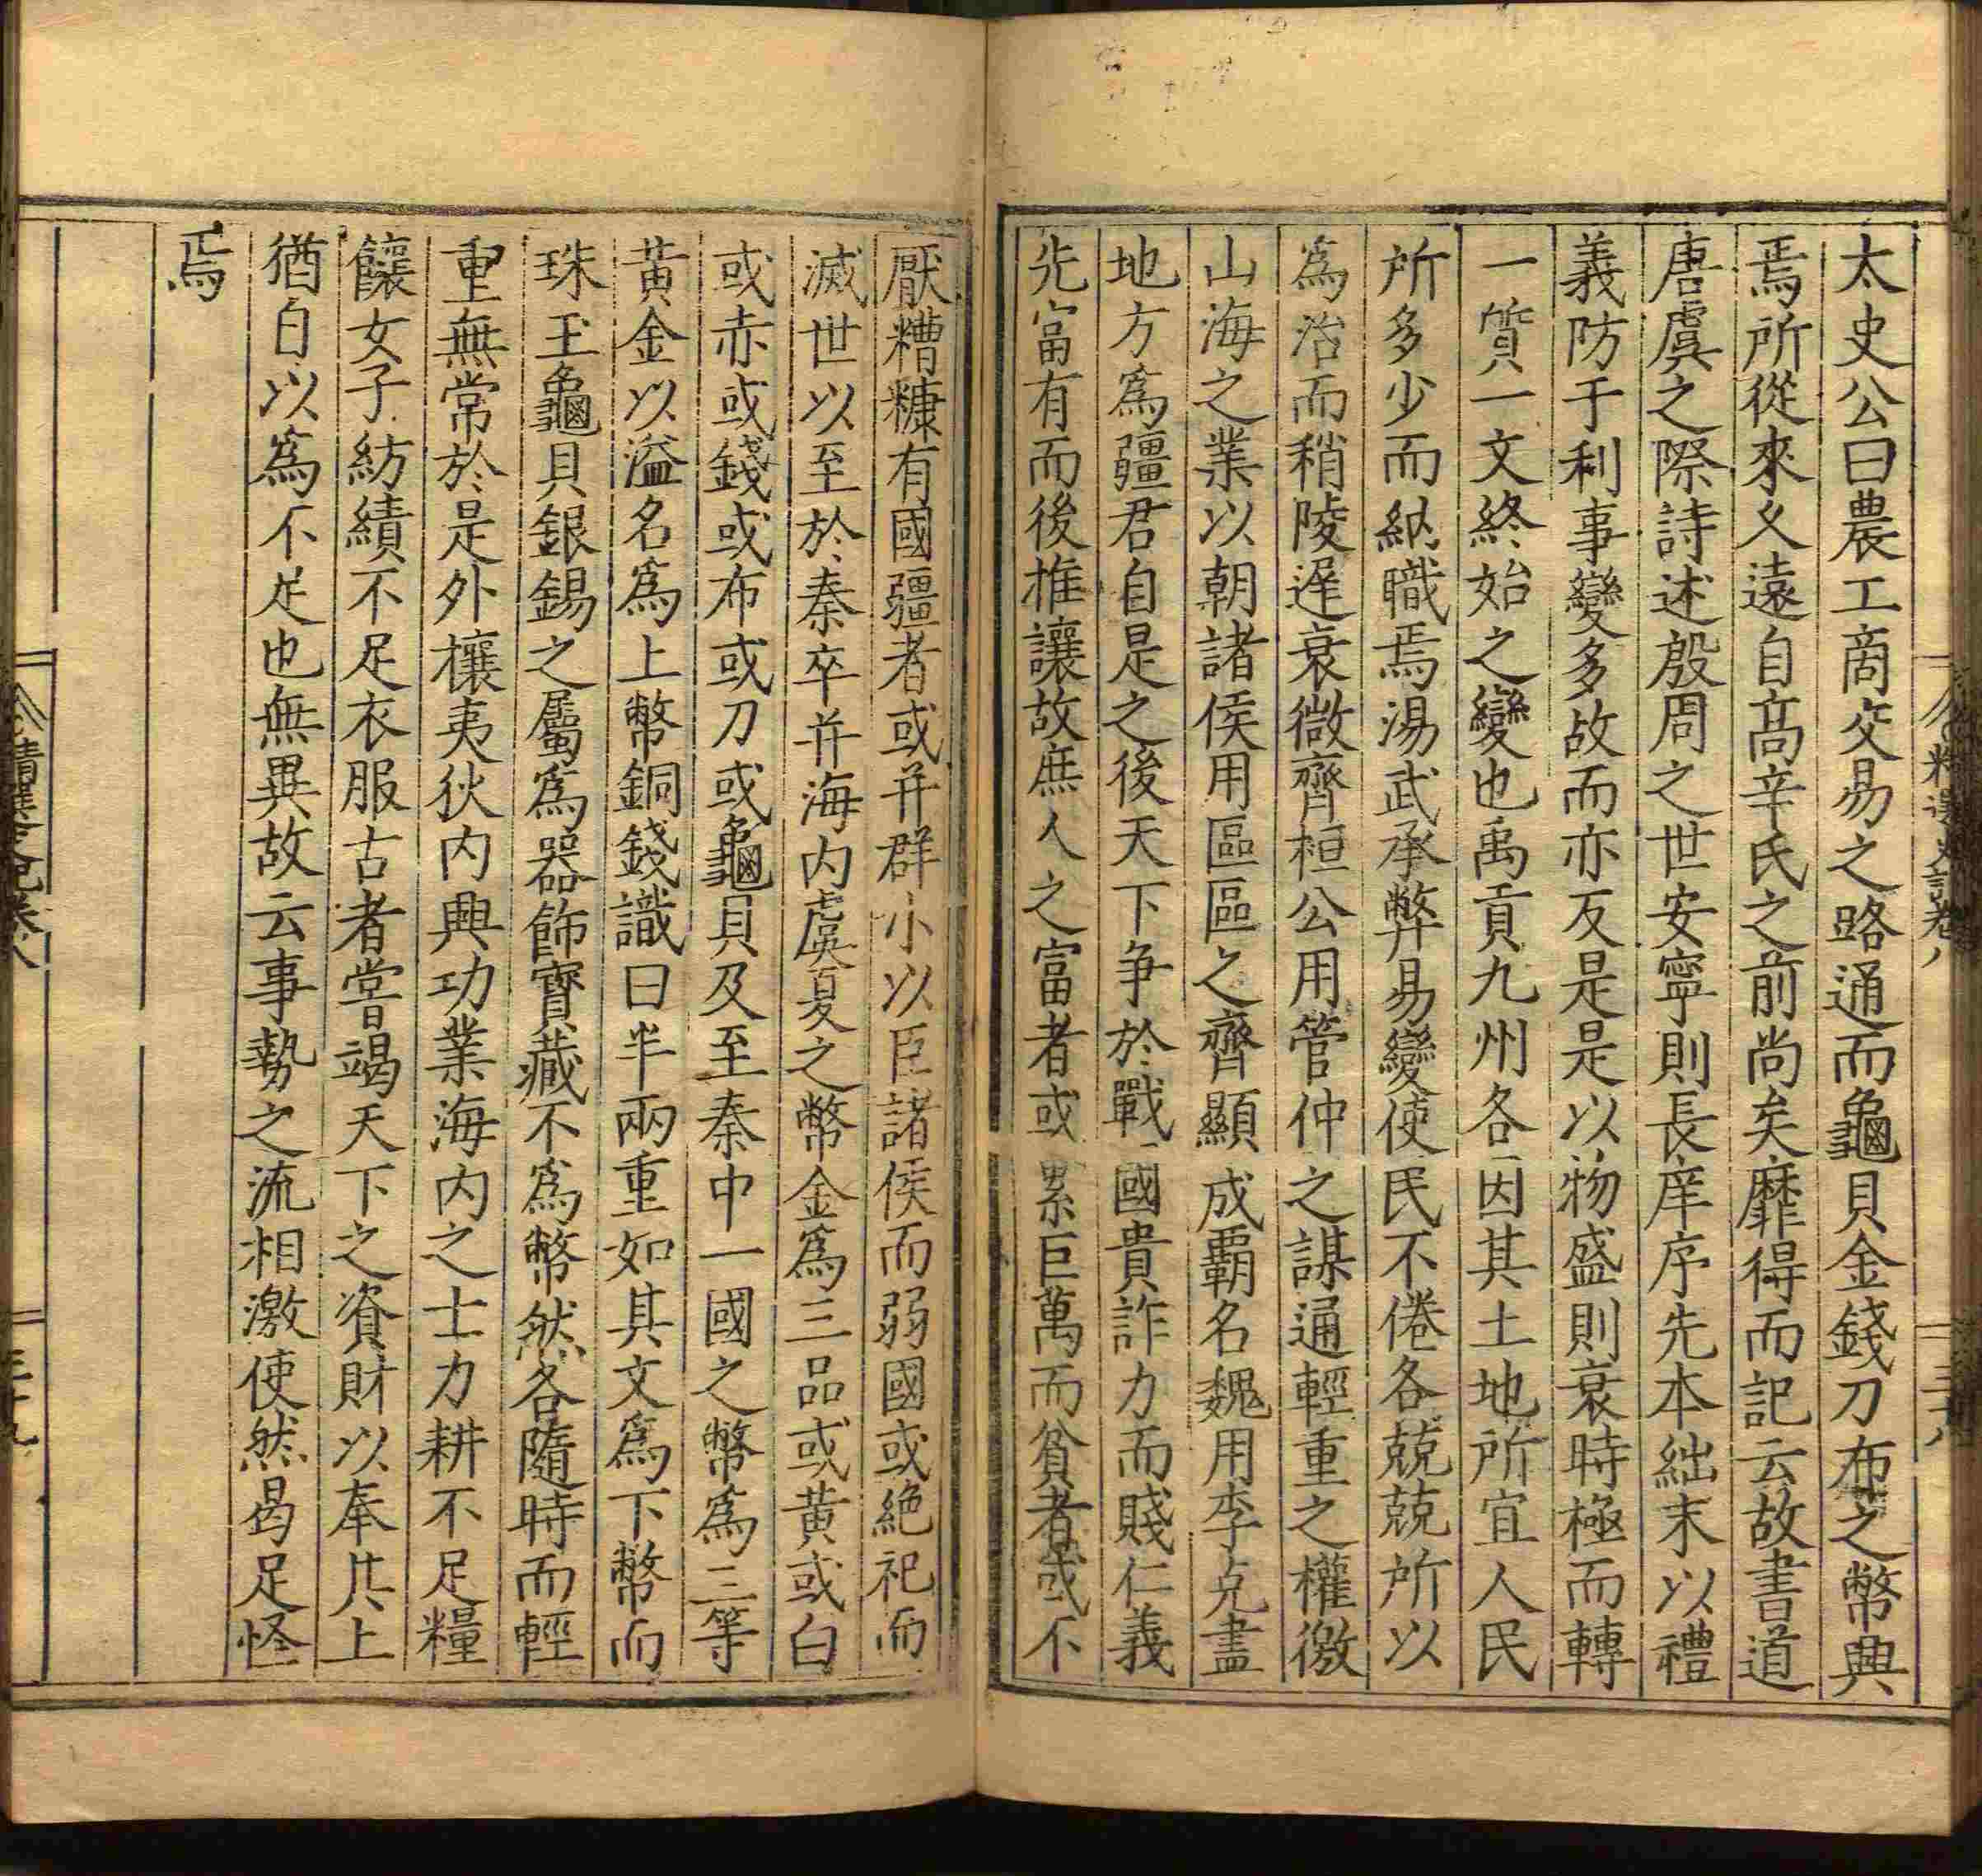 太史公曰農工商交易之路通而龜貝金錢刀布之幣興
焉所從來乆遠自髙辛氏之前尚矣靡得而記云故書道
唐虞之際詩述殷周之世安寧則長庠序先本絀末以禮
義防于利事變多故而亦反是是以物盛則衰時極而轉
一質一文終始之變也禹貢九州各因其土地所宜人民
所多少而納職焉湯武承弊易變使民不倦各兢兢所以
爲治而稍陵遲衰微齊桓公用管仲之謀通輕重之權徼
山海之業以朝諸侯用區區之齊顯成覇名魏用李克盡
地方爲疆君自是之後天下争於戰國貴詐力而賤仁義
先富有而後推讓故庶人之富者或累巨萬而貧者或不
厭糟糠有國疆者或并群小以臣諸侯而弱國或絶祀而
滅世以至於秦卒并海内虞夏之幣金爲三品或黄或白
或赤或錢或布或刀或龜貝及至秦中一國之幣爲三等
黄金以溢名爲上幣銅錢識曰半兩重如其文爲下幣而
珠玉龜貝銀錫之屬爲器飾寳藏不爲幣然各隨時而輕
重無常於是外攘夷狄内興功業海内之士力耕不足糧
饟女子紡績不足衣服古者嘗竭天下之資財以奉其上
猶自以爲不足也無異故云事勢之流相激使然曷足怪
焉